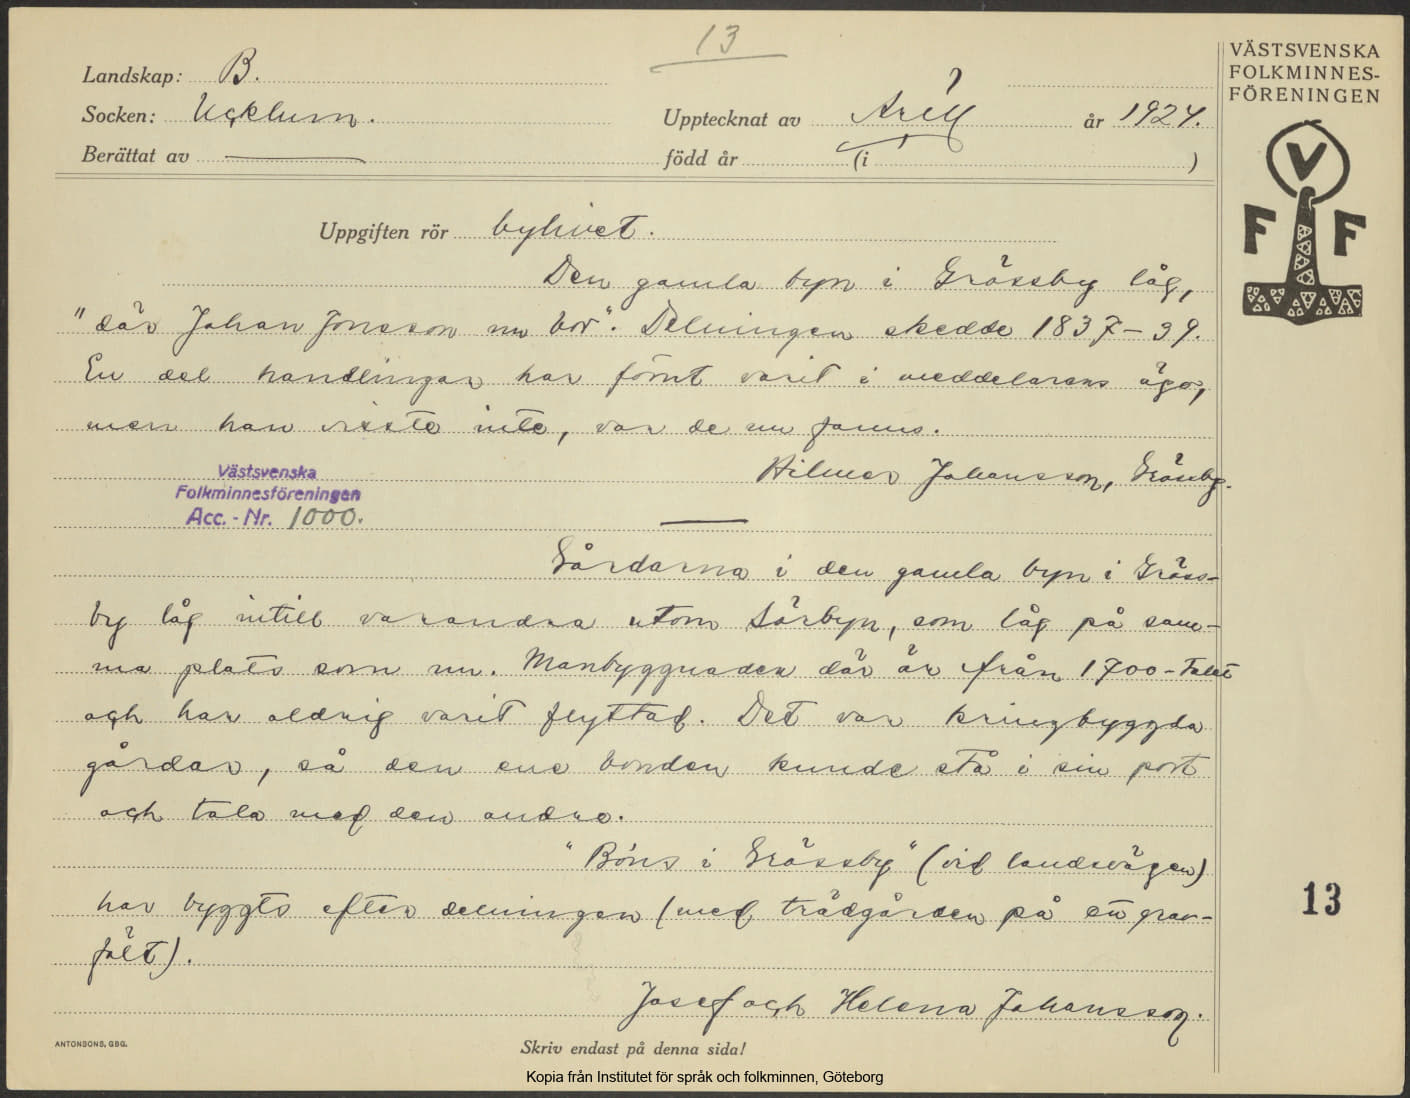 13
VÄSTSVENSKA
FOLKMINNES-
FÖRENINGEN
Landskap: B.
Socken: Ucklum.
Upptecknat av Arill år 1924.
Berättat av —
född år (i )
V
F F
Uppgiften rör bylivet.
Den gamla byn i Grössby låg,
"där Johan Jonsson nu bor". Delningen skedde 1837–39.
En del handlingar har förut varit i meddelarens ägo,
men han visste inte, var de nu fanns.
Hilmer Johansson, Grössby.
Västsvenska
Folkminnesföreningen
Acc. - Nr. 1000.
Gårdarna i den gamla byn i Gröss-
by låg intill varandra utom Sörbyn, som låg på sam-
ma plats som nu. Manbyggnaden där är från 1700-talet
och har aldrig varit flyttad. Det var kringbyggda
gårdar, så den ene bonden kunde stå i sin port
och tala med den andre.
" i Grössby" (vid landsvägen)
har byggts efter delningen (med trädgården på ett grav-
fält).
13
Josef och Helena Johansson.
ANTONSONS, GBG.
Skriv endast på denna sida!
Kopia från Institutet för språk och folkminnen, Göteborg